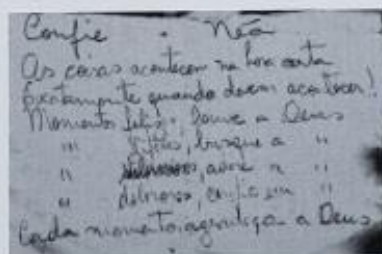 Confie . Não
As coisas acontecem na hora certa
Exatamente quando devem acontecer!
Momentos felizes, louve a Deus
"" difíceis, busque a "
" silenciosos, adore a "
" dolorosos, confia em "
Cada momento, agradeça a Deus